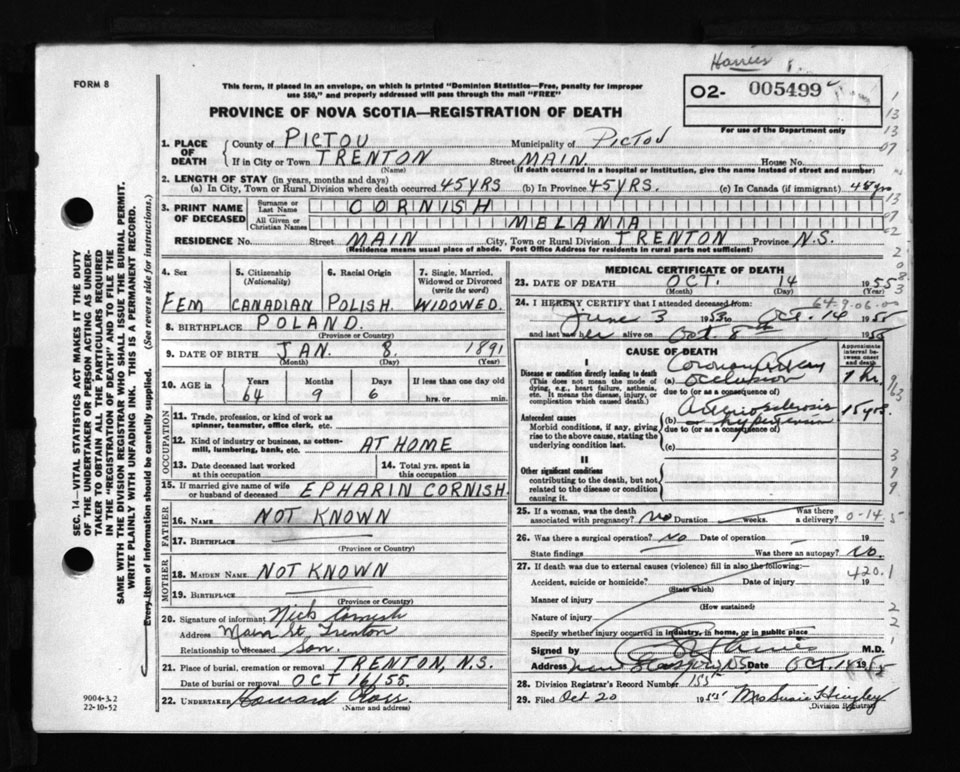 Harries
FORM 8
This form, if placed in an envelope, on which is printed "Dominion Statistics—Free, penalty for improper
use $50," and properly addressed will pass through the mail "FREE"
O2- 005499
For use of the Department only
PROVINCE OF NOVA SCOTIA—REGISTRATION OF DEATH
1. PLACE OF DEATH { County of PICTOU Municipality of PICTOU
If in City or Town TRENTON (Name) Street MAIN. House No.
(If death occurred in a hospital or institution, give the name instead of street and number)
2. LENGTH OF STAY (in years, months and days)
(a) In City, Town or Rural Division where death occurred 45 YRS (b) In Province 45 YRS. (c) In Canada (if immigrant) 48 yrs
3. PRINT NAME OF DECEASED { Surname or Last Name CORNISH
All Given or Christian Names MELANIA
RESIDENCE No. Street MAIN City, Town or Rural Division TRENTON Province N.S.
(Residence means usual place of abode. Post Office Address for residents in rural parts not sufficient)
4. Sex 5. Citizenship (Nationality) 6. Racial Origin 7. Single, Married, Widowed or Divorced (write the word)
FEM CANADIAN POLISH. WIDOWED.
8. BIRTHPLACE POLAND.
(Province or Country)
9. DATE OF BIRTH JAN. 8. 1891
(Month) (Day) (Year)
10. AGE is { Years Months Days If less than one day old
64 9 6 hrs. or min.
OCCUPATION
11. Trade, profession, or kind of work as
spinner, teamster, office clerk, etc.
12. Kind of industry or business, as cotten-
mill, lumbering, bank, etc. AT HOME
13. Date deceased last worked
at this occupation
14. Total yrs. spent in
this occupation
15. If married give name of wife
or husband of deceased EPHARIN CORNISH.
FATHER
16. NAME NOT KNOWN
17. BIRTHPLACE
(Province or Country)
MOTHER
18. MAIDEN NAME NOT KNOWN
19. BIRTHPLACE
(Province or Country)
20. Signature of informant Nick Cornish
Address Main St, Trenton
Relationship to deceased Son.
21. Place of burial, cremation or removal TRENTON, N.S.
Date of burial or removal OCT 16/55.
22. UNDERTAKER Howard Ross
(Name and address)
MEDICAL CERTIFICATE OF DEATH
23. DATE OF DEATH OCT. 14 1955
(Month) (Day) (Year)
24. I HEREBY CERTIFY that I attended deceased from 64.9.06.00
June 3 1953 to Oct. 14 1955
and last saw her alive on Oct. 8th 1955
CAUSE OF DEATH
Approximate interval between onset and death
I
Disease or condition directly leading to death
(This does not mean the mode of
dying, e.g., heart failure, asthenia,
etc. It means the disease, injury, or
complication which caused death.)
(a) Coronary Artery
Occlusion 1 hr.
due to (or as a consequence of)
Antecedent causes
Morbid conditions, if any, giving
rise to the above cause, stating the
underlying condition last.
(b) Arteriosclerosis 15 yrs.
hypertension
due to (or as a consequence of)
(c)
II
Other significant conditions
contributing to the death, but not
related to the disease or condition
causing it.
25. If a woman, was the death
associated with pregnancy? No Duration weeks. Was there
a delivery? 0-14.5
26. Was there a surgical operation? No Date of operation 19
State findings Was there an autopsy? No.
27. If death was due to external causes (violence) fill in also the following:—
420.1
Accident, suicide or homicide? Date of injury 19
(State which)
Manner of injury
(How sustained)
Nature of injury
Specify whether injury occurred in industry, in home, or in public place
Signed by M.D.
Address New Glasgow NS Date Oct. 18 19
28. Division Registrar's Record Number 155
29. Filed Oct 20 1955 Mrs Susie Hingley
Division Registrar
SEC. 14—VITAL STATISTICS ACT MAKES IT THE DUTY
OF THE UNDERTAKER OR PERSON ACTING AS UNDER-
TAKER TO OBTAIN ALL THE PARTICULARS REQUIRED
IN THE "REGISTRATION OF DEATH" AND TO FILE THE
SAME WITH THE DIVISION REGISTRAR WHO SHALL ISSUE THE BURIAL PERMIT.
WRITE PLAINLY WITH UNFADING INK. THIS IS A PERMANENT RECORD.
Every item of information should be carefully supplied. (See reverse side for instructions.)
9004-3.2
22-10-52